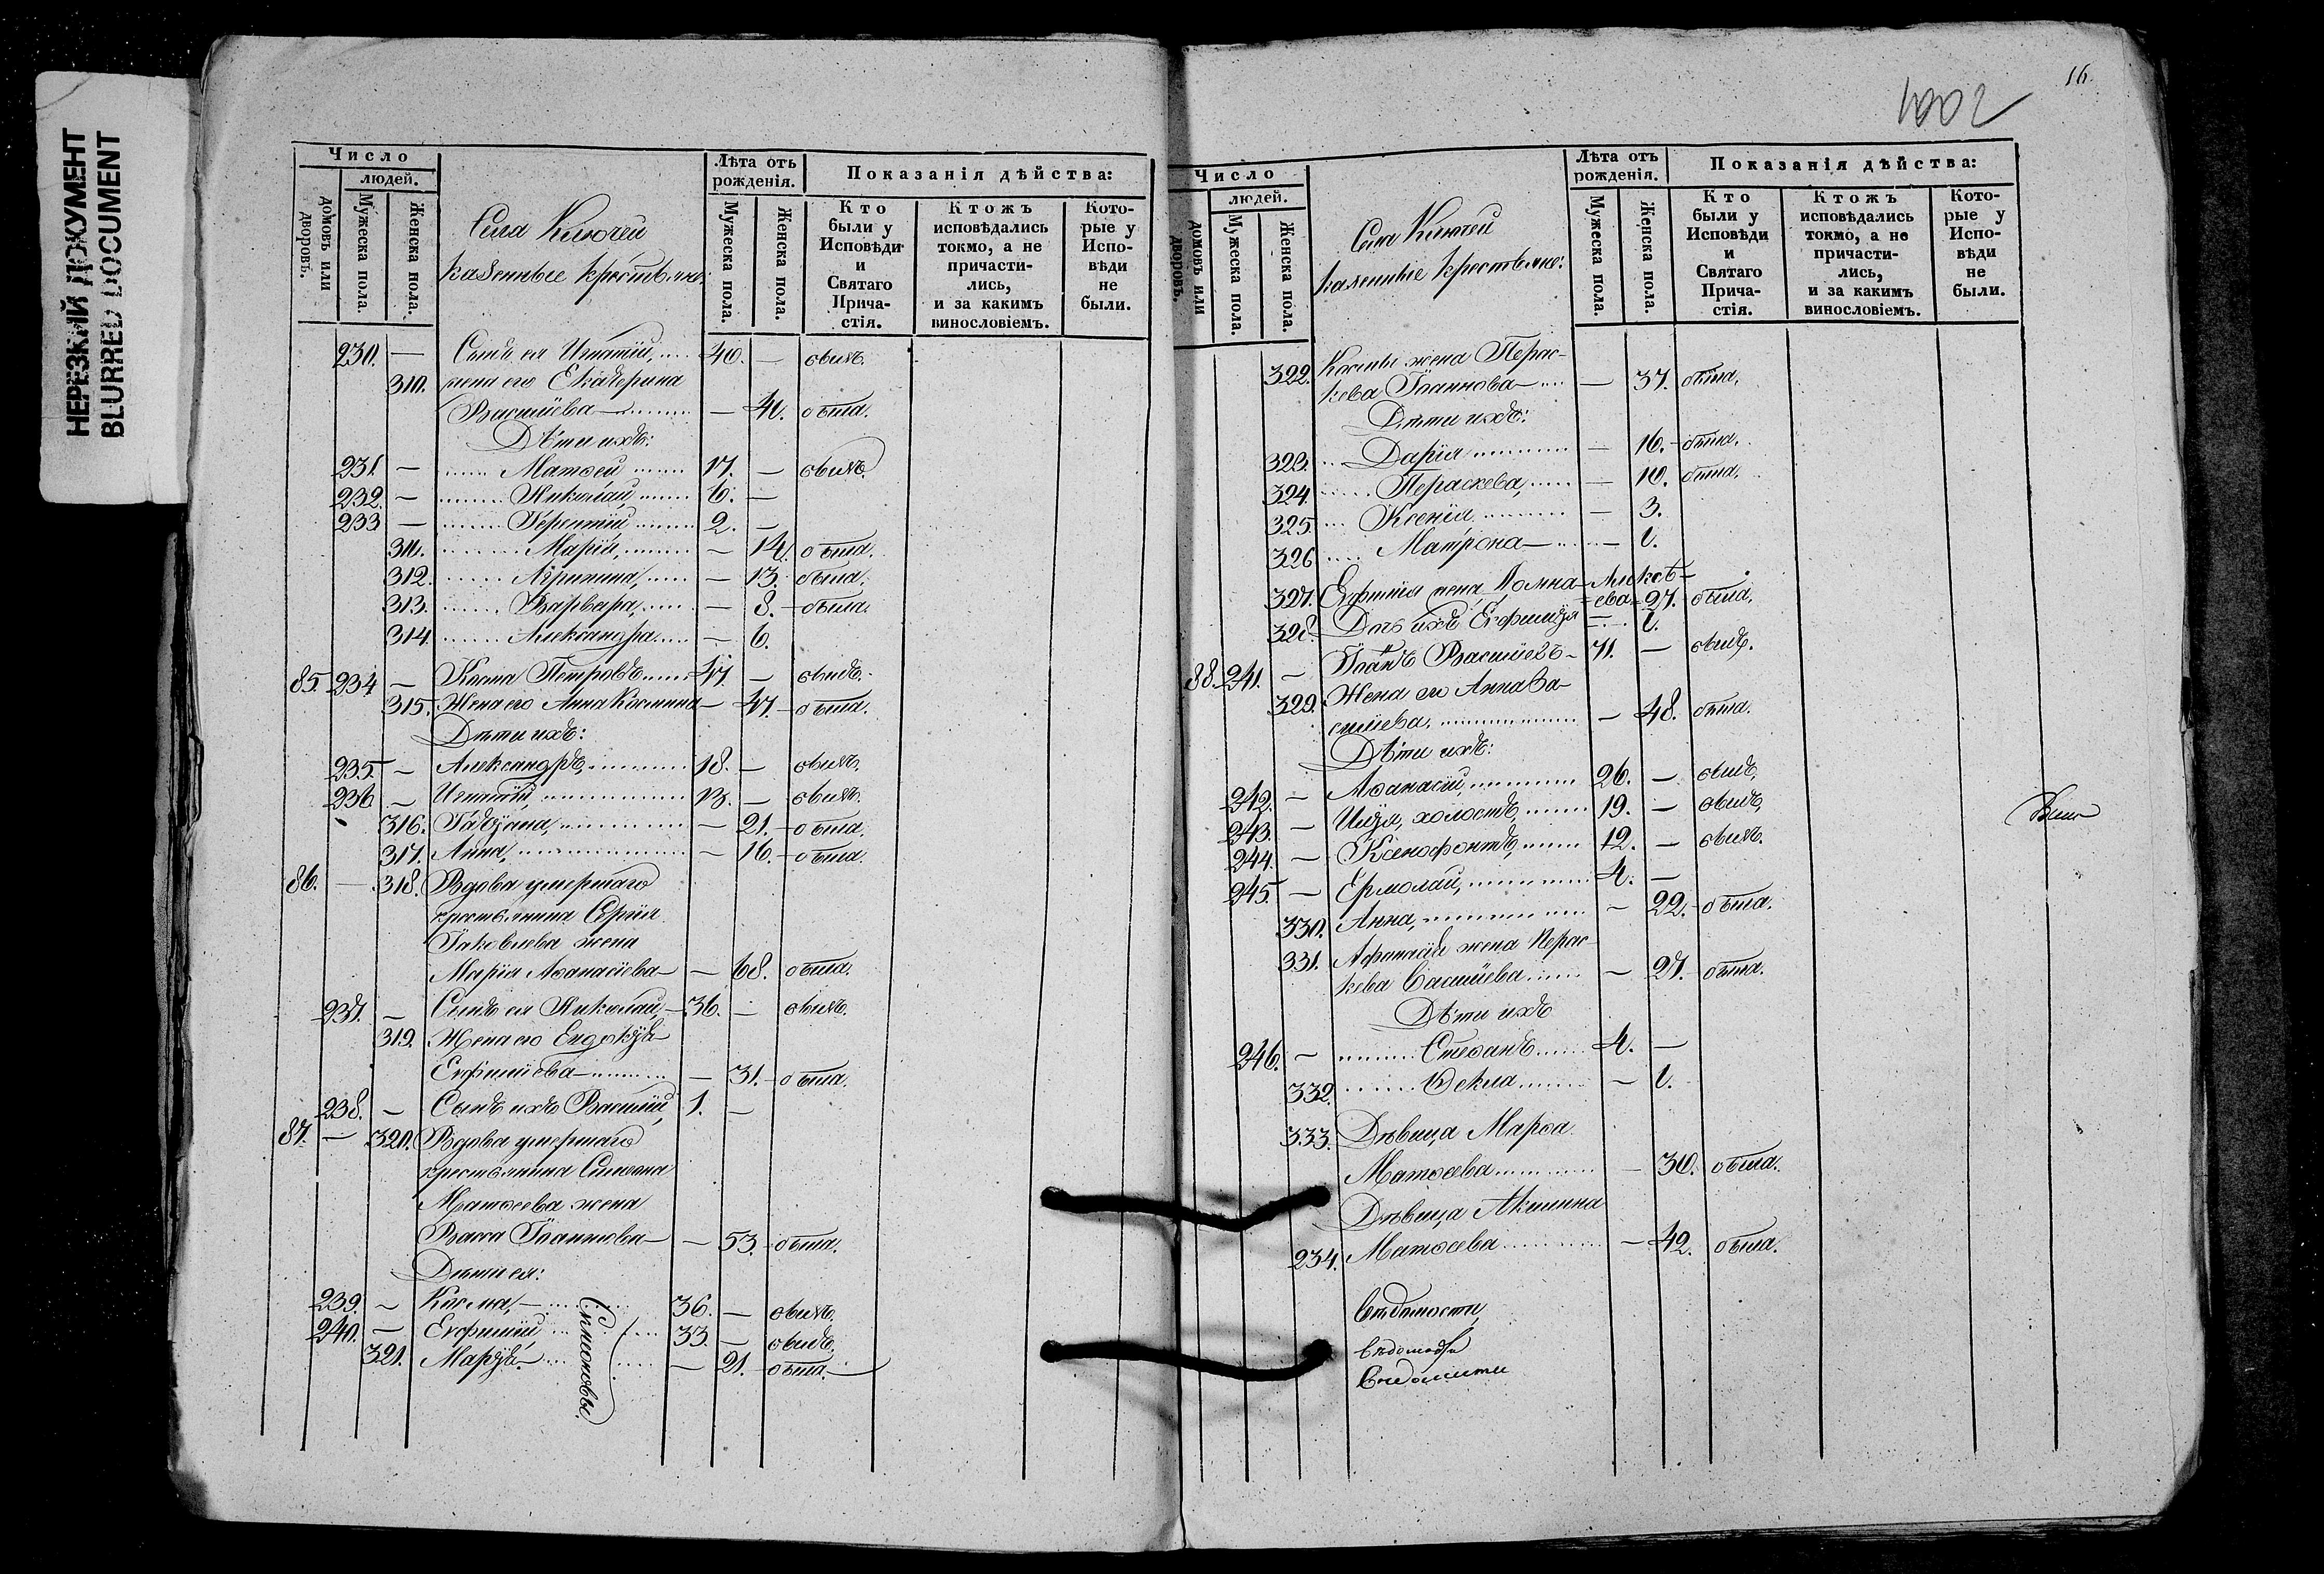 НЕРЕЗКИЙ ДОКУМЕНТ
BLURRED DOCUMENT
Число
людей.
домовъ или дворовъ.
Мужеска пола.
Женска пола.
Села Ключей
казенные крестьяне:
Лѣта отъ рожденія.
Мужеска пола.
Женска пола.
Показанія дѣйства:
Кто были у Исповѣди и Святаго Прича-стія.
Ктожъ исповѣдались токмо, а не причасти-лись, и за какимъ винословіемъ.
Кото-рые у Испо-вѣди не были.
230. — Сынъ ея Игнатій, 40. — былъ.
310. жена его Екатерина
Васильева — 41. была.
Дѣти ихъ:
231. — Матѳей 17. — былъ.
232. — Николай, 6. —
233 — Терентій, 2. —
311. Марія, — 14. была.
312. Агрипина, — 13. была.
313. Варвара, — 8. — была.
314. Александра — 6.
85. 234 — Косма Петровъ 47. — былъ.
315. Жена его Анна Космина — 47. — была.
Дѣти ихъ:
235. — Александръ, 18. — былъ.
236 — Игнатій, 13. — былъ.
316. Татіана, — 21. — была.
317. Анна, — 16. — была.
86. — 318. Вдова умершаго
крестьянина Сергія
Іаковлева жена
Марія Аѳанасіева — 68. была.
237. — Сынъ ея Николай, — 36. — былъ.
319. Жена его Евдокія
Евфиміева — 31. — была.
238. — Сынъ ихъ Василій, 1. —
87. — 320. Вдова умершаго
крестьянина Симеона
Матѳеева жена
Васса Іоаннова — 53. — была.
Дѣти ея:
239. — Косма, 36. — былъ.
240. — Евфимій, 33. — былъ.
321. Марія, — 21. — была.
Симеоновы.
16.
1002
Число
людей.
домовъ или дворовъ.
Мужеска пола.
Женска пола.
Села Ключей
казенные крестьяне:
Лѣта отъ рожденія.
Мужеска пола.
Женска пола.
Показанія дѣйства:
Кто были у Исповѣди и Святаго Прича-стія.
Ктожъ исповѣдались токмо, а не причасти-лись, и за какимъ винословіемъ.
Кото-рые у Испо-вѣди не были.
322. Космы жена Перас-
кева Іоаннова — 37. была.
Дѣти ихъ:
323. Дарія — 16. — была.
324. Пераскева, — 10. была.
325. Ксенія — 3.
326 Матрона — 1.
327. Евфимія жена, Домна Алексѣ-
ева 27. была.
328. Дочь ихъ Евфимія — 1.
88. 241. — Іоаннъ Васильевъ — 71. — былъ.
329. Жена его Анна Ва-
сильева, — 48. была.
Дѣти ихъ:
242. — Аѳанасій, 26. — былъ.
243. — Илія, холостъ, 19. — былъ,
244. — Ксенофонтъ, 12. — былъ.
245. — Ермолай, 4. —
330. Анна, — 22. — была.
331. Афанасія жена Перас-
кева Васильева — 27. была.
Дѣти ихъ
246. — Стеѳанъ 4. —
332. Ѳекла — 1.
333. Дѣвица Марѳа
Матѳеева — 30. была.
Дѣвица Акилина
234. Матѳеева — 42. была.
вѣдомости